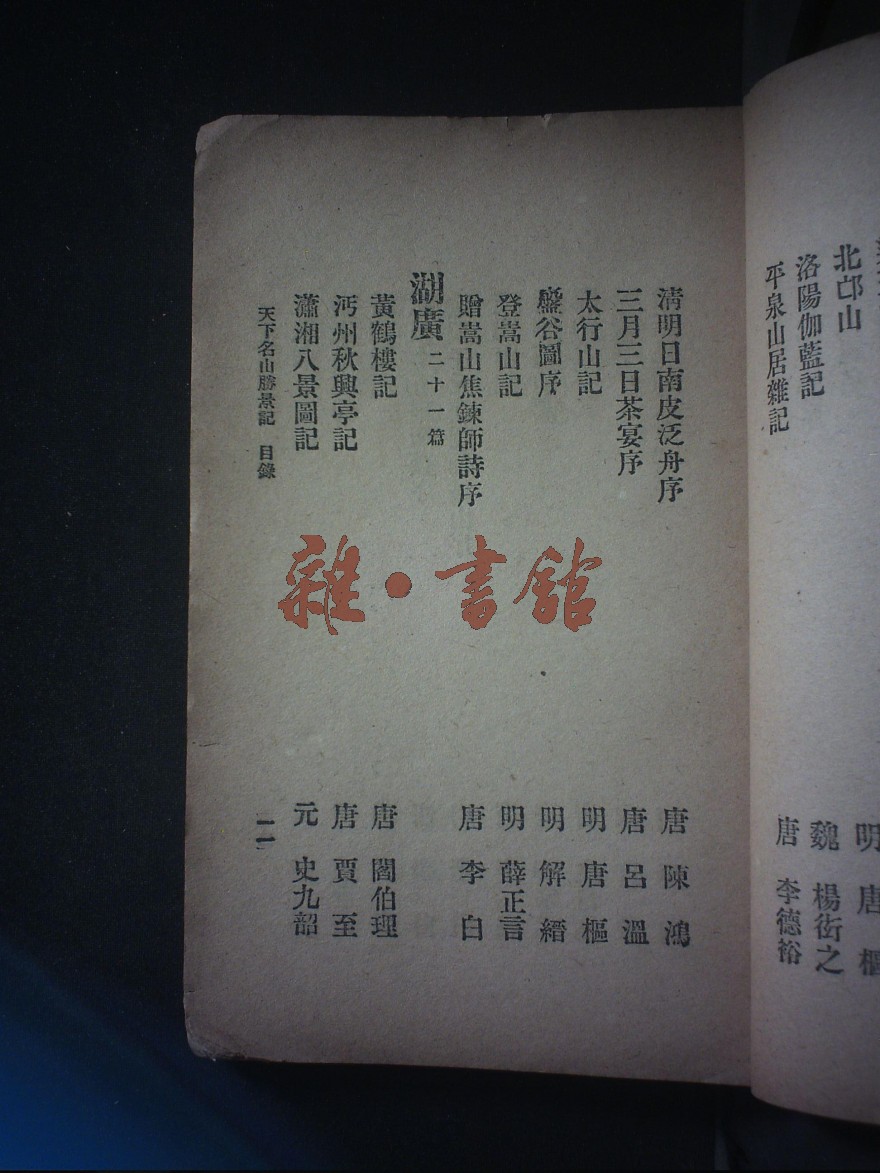 北邙山　明　唐　樞
洛陽伽藍記　魏　楊衒之
平泉山居雜記　唐　李德裕
清明日南皮泛舟序　唐　陳　鴻
三月三日茶宴序　唐　呂　溫
太行山記　明　唐　樞
盤谷圖序　明　解　縉
登嵩山記　明　薛正言
贈嵩山焦鍊師詩序　唐　李　白
湖廣　二十一篇
黃鶴樓記　唐　閻伯理
沔州秋興亭記　唐　賈　至
瀟湘八景圖記　元　史九韶
天下名山勝景記　目錄　一一
雜·書館